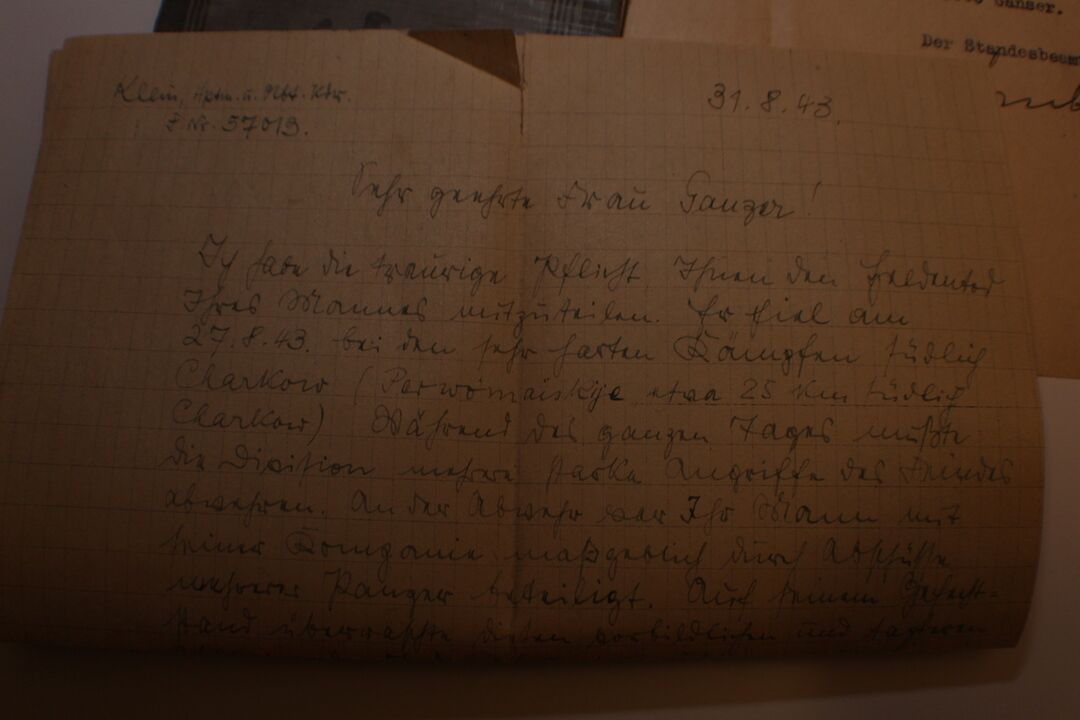 Ganser.
Der Standesbeamt
Klein, Hptm. u. Abt. Kdr.
F. Nr. 57013.
31.8.43.
Sehr geehrte Frau Ganzer!
Ich habe die traurige Pflicht Ihnen den Heldentod
Ihres Mannes mitzuteilen. Er fiel am
27.8.43. bei den sehr harten Kämpfen südlich
Charkow (Perwomaiskije etwa 25 km südlich
Charkow) Während des ganzen Tages mußte
die Division mehrere starke Angriffe des Feindes
abwehren. An der Abwehr war Ihr Mann mit
seiner Kompanie maßgeblich durch Abschüsse
mehrerer Panzer beteiligt. Auf seinem Gefecht-
stand überraschte diesen vorbildlichen und tapferen